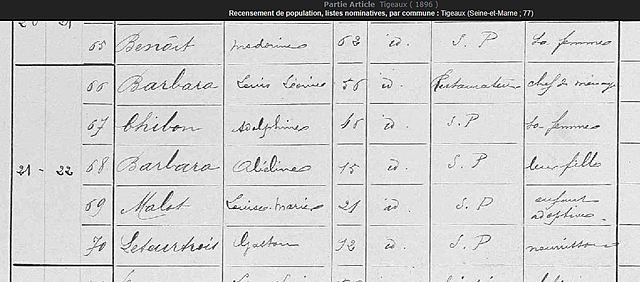 Partie Article Tigeaux ( 1896 )
Recensement de population, listes nominatives, par commune : Tigeaux (Seine-et-Marne ; 77)
20 21
65 Benoît 62 id. S. P sa femme
66 Barbara Louis 56 id. Restaurateur chef de ménage
67 Chibon Adelphine id. S. P sa femme
21 - 22 68 Barbara 15 id. S. P leur fille
69 Malot Louise-Marie 21 id S. P enfant
adoptive
70 Letourtrois Gaston 12 id. S. P nourrisson